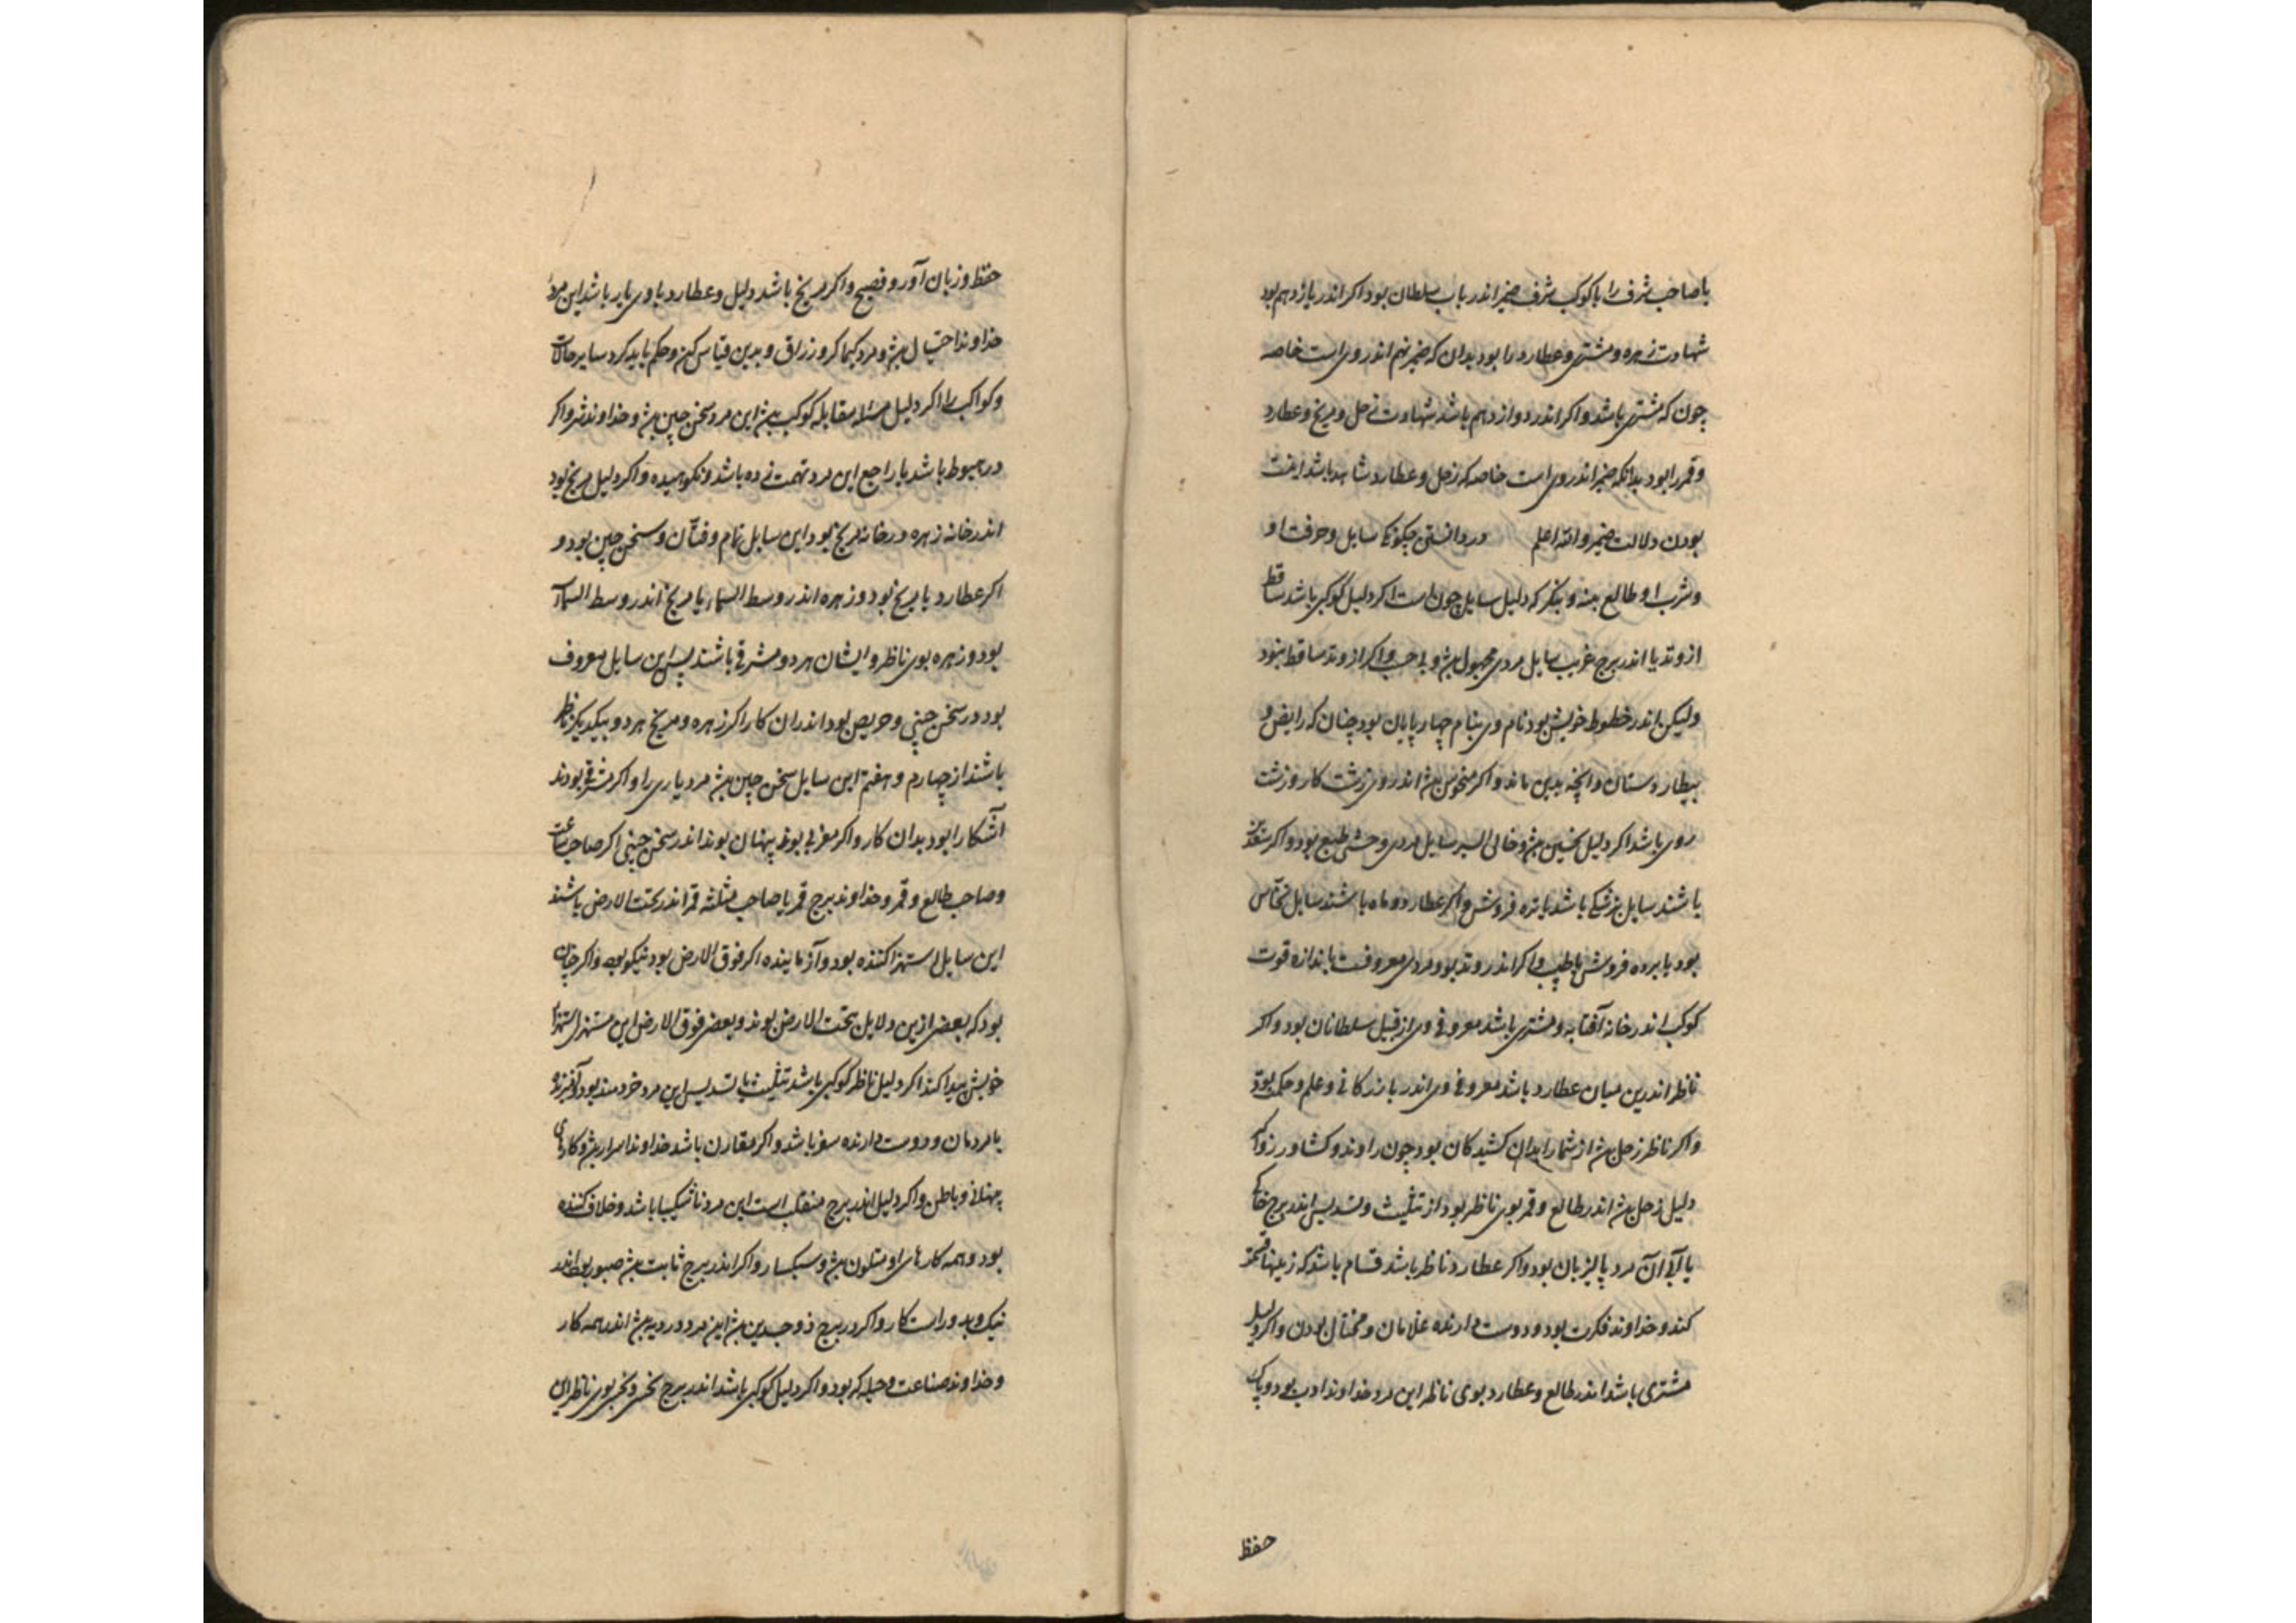 با صاحب شرف را با کوکب شرف ضمیر اندر باب سلطان بود اکر اندر یازدهم بود
شهادت زهره و مشتری و عطارد را بود بدان که ضمیر هم اندر وی است خاصه
چون که مشتری باشد و اکر اندر دوازدهم باشد شهادت زحل و مریخ و عطارد
و قمر را بود بدانکه ضمیر اندر وی است خاصه که زحل و عطارد شاهد باشد اینت
بودن دلالت ضمیر والله اعلم در دانستن چکونکی سایل و حرفت او
و شرب او طالع بنه و بنکر که دلیل سایل چون است اکر دلیل کوکبی باشد ساقط
از وتد یا اندر برج غریب سایل مردی مجهول بش و بی حسب و اکر از وتد ساقط نبود
ولیکن اندر خطوط خویش بود نام وی بنام چهارپایان بود چنان که رایض و
بیطار و ستان و آنچه بدین ماند و اکر منحوس بش اندر وی زشت کار و زشت
روی باشد اکر دلیل نحسین بش و خالی السیر سایل مردی وحشی طبع بود و اکر سعدین
باشند سایل پزشکی باشد یا تره فروش و اکر عطارد و ماه باشند سایل نخاس
بود یا برده فروش یا طبیب و اکر اندر وتد بود مردی معروفست باندازه قوت
کوکب اندر خانه آفتاب و مشتری باشد معروفی وی از قبل سلطانان بود و اکر
ناظر اندرین میان عطارد باشد معروفی وی اندر بازرکانی و علم و حکمت بود
و اکر ناظر زحل بش از شمار ابدان کشیدکان بود چون راوند و کشاورز و اکر
دلیل زحل بش اندر طالع و قمر بوی ناظر بود از تثلیث و تسدیس اندر برج خاکی
یا آبی آن مرد پالیزبان بود و اکر عطارد ناظر باشد قسام باشد که زمینها قسمت
کند و خداوند فکرت بود و دوست دارنده غلامان و مختال بودن و اکر دلیل
مشتری باشد اندر طالع و عطارد بوی ناظر این مرد خداوند ادب بود و پاک
حفظ
حفظ و زبان آور و فصیح و اکر مریخ باشد دلیل و عطارد با وی یار باشد این مرد
خداوند احتیال بش و مرد کیماکر و زراق و بدین قیاس کن و حکم باید کرد سایر حالات
و کواکب را اکر دلیل مسئله مقابله کوکب بش این مرد سخن چین بش و خداوند شر و اکر
در هبوط باشد یا راجع این مرد تهمت زده باشد و نکوهیده و اکر دلیل مریخ بود
اندر خانه زهره در خانه مریخ بود این سایل نمام و فتان و سخن چین بود و
اکر عطارد با مریخ بود و زهره اندر وسط السماء یا مریخ اندر وسط السماء
بود و زهره بوی ناظر و ایشان هر دو مشرقی باشند پس این سایل معروف
بود در سخن چینی و حریص بود اندران کار اکر زهره و مریخ هر دو بیکدیکر ناظر
باشند از چهارم و هفتم این سایل سخن چین بش مرد یاری را و اکر مشرقی بودند
آشکارا بود بدان کار و اکر مغربی بوند پنهان بوند اندر سخن چینی اکر صاحب ساعت
و صاحب طالع و قمر و خداوند برج قمر یا صاحب مثلثه قمر اندر تحت الارض باشند
این سایل استهزا کننده بود و آزماینده اکر فوق الارض بود نیکو بود و اکر چنان
بود که بعضی ازین دلایل تحت الارض بوند و بعضی فوق الارض این مستهزی استهزا
خویش پیدا کند اکر دلیل ناظر کوکبی باشد تثلیث یا تسدیس این مرد خردمند بود آمیزنده
با مردمان و دوست دارنده سفر باشد و اکر مقارن باشد خداوند اسرار بش و کارهای
پنهانی و باطن و اکر دلیل اندر برج منقلب است این مرد ناشکیبا باشد و خلاف کننده
بود و همه کارهای او متلون بش و سبکسار و اکر اندر برج ثابت بش صبور بود اندر
نیک و بد و راست کار و اکر در برج ذوجسدین بش این مرد دو رویه بش اندر همه کار
و خداوند صناعت و حیله کر بود و اکر دلیل کوکبی باشد اندر برج نحس و نحس بوی ناظر این